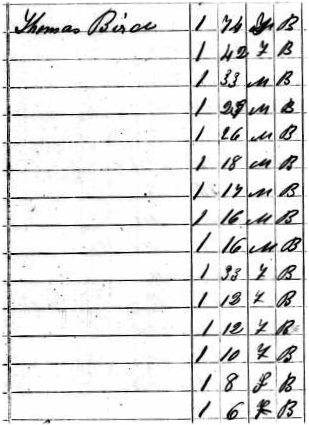 Thomas Bird 1 74 M B
1 42 F B
1 33 M B
1 29 M B
1 26 M B
1 18 M B
1 17 M B
1 16 M B
1 16 M B
1 33 F B
1 12 F B
1 12 F B
1 10 F B
1 8 F B
1 6 F B